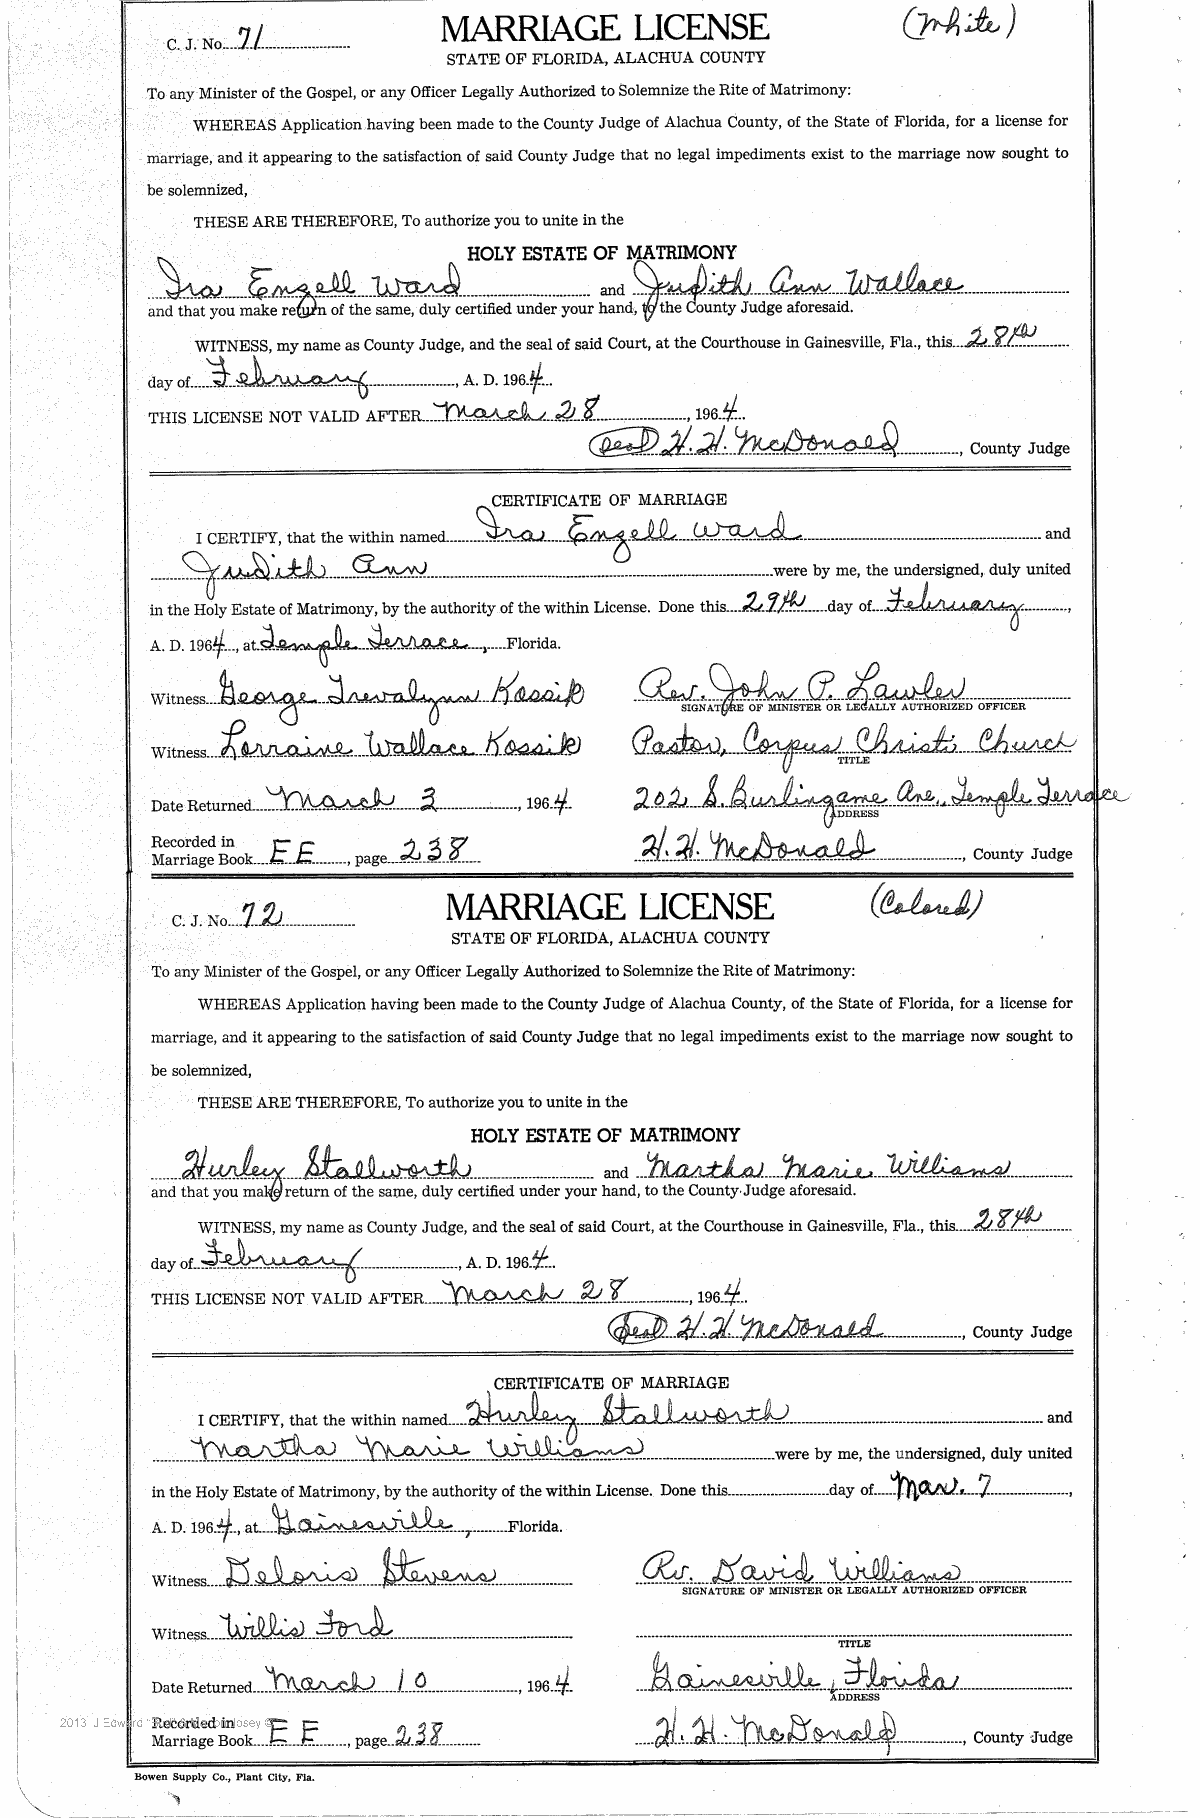 C. J. No. 71 MARRIAGE LICENSE (White)
STATE OF FLORIDA, ALACHUA COUNTY
To any Minister of the Gospel, or any Officer Legally Authorized to Solemnize the Rite of Matrimony:
WHEREAS Application having been made to the County Judge of Alachua County, of the State of Florida, for a license for
marriage, and it appearing to the satisfaction of said County Judge that no legal impediments exist to the marriage now sought to
be solemnized,
THESE ARE THEREFORE, To authorize you to unite in the
HOLY ESTATE OF MATRIMONY
Ira Engell Ward and Judith Ann Wallace
and that you make return of the same, duly certified under your hand, to the County Judge aforesaid.
WITNESS, my name as County Judge, and the seal of said Court, at the Courthouse in Gainesville, Fla., this 28th
day of February, A. D. 1964.
THIS LICENSE NOT VALID AFTER March 28, 1964.
(Seal) H. H. McDonald, County Judge
CERTIFICATE OF MARRIAGE
I CERTIFY, that the within named Ira Engell Ward and
Judith Ann were by me, the undersigned, duly united
in the Holy Estate of Matrimony, by the authority of the within License. Done this 29th day of February,
A. D. 1964, at Temple Terrace, Florida.
Witness George Trevalynn Kossik Rev. John P. Lawler
SIGNATURE OF MINISTER OR LEGALLY AUTHORIZED OFFICER
Witness Lorraine Wallace Kossik Pastor, Corpus Christi Church
TITLE
Date Returned March 3, 1964. 202 S. Burlingame Ave., Temple Terrace
ADDRESS
Recorded in
Marriage Book EE, page 238 H. H. McDonald, County Judge
C. J. No. 72 MARRIAGE LICENSE (Colored)
STATE OF FLORIDA, ALACHUA COUNTY
To any Minister of the Gospel, or any Officer Legally Authorized to Solemnize the Rite of Matrimony:
WHEREAS Application having been made to the County Judge of Alachua County, of the State of Florida, for a license for
marriage, and it appearing to the satisfaction of said County Judge that no legal impediments exist to the marriage now sought to
be solemnized,
THESE ARE THEREFORE, To authorize you to unite in the
HOLY ESTATE OF MATRIMONY
Hurley Stallworth and Martha Marie Williams
and that you make return of the same, duly certified under your hand, to the County Judge aforesaid.
WITNESS, my name as County Judge, and the seal of said Court, at the Courthouse in Gainesville, Fla., this 28th
day of February, A. D. 1964.
THIS LICENSE NOT VALID AFTER March 28, 1964.
(Seal) H. H. McDonald, County Judge
CERTIFICATE OF MARRIAGE
I CERTIFY, that the within named Hurley Stallworth and
Martha Marie Williams were by me, the undersigned, duly united
in the Holy Estate of Matrimony, by the authority of the within License. Done this day of Mar. 7,
A. D. 1964, at Gainesville, Florida.
Witness Deloris Stevens Rv. David Williams
SIGNATURE OF MINISTER OR LEGALLY AUTHORIZED OFFICER
Witness Willis Ford
TITLE
Date Returned March 10, 1964. Gainesville, Florida
ADDRESS
2013 J Edward
Recorded in
Marriage Book EE, page 238 H. H. McDonald, County Judge
Bowen Supply Co., Plant City, Fla.